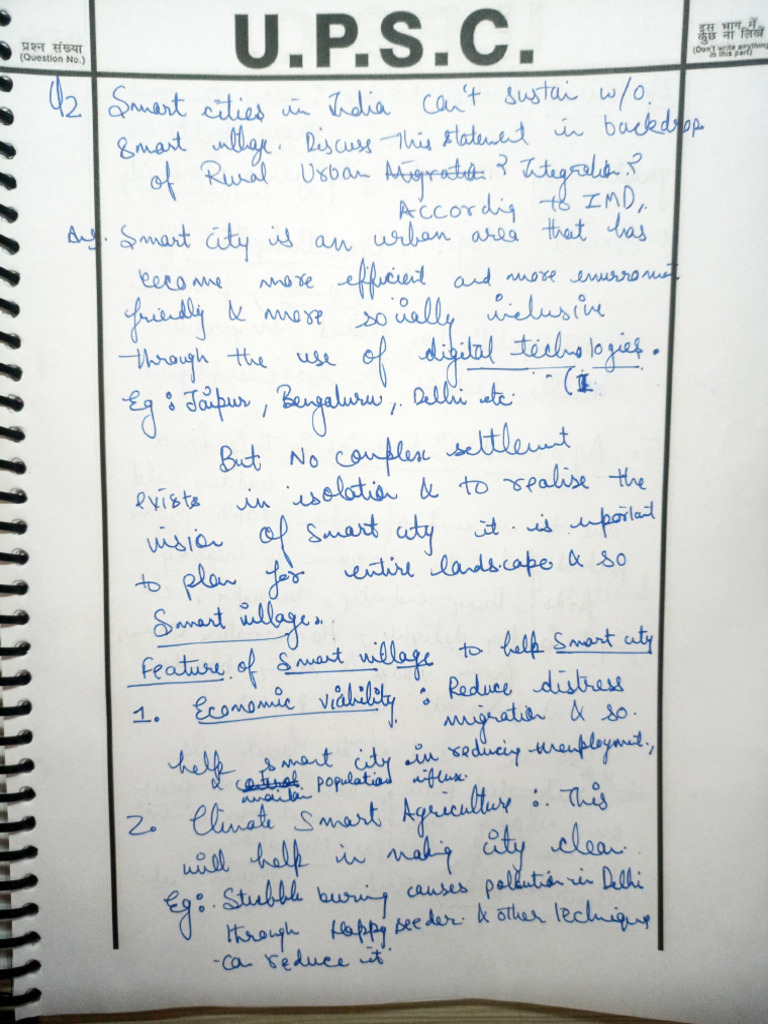 प्रश्न संख्या
(Question No.)
U.P.S.C.
इस भाग में
कुछ ना लिखें
(Don't write anything
in this part)
Q2 Smart cities in India can't sustai w/o
Smart village. Discuss This statement in backdrop
of Rural Urban Migratio? Integratio.?
Accordig to IMD,
Ans. Smart city is an urban area that has
become more efficient and more envirromet
friendly & more socially inclusive
through the use of digital technologies.
(I
Eg: Jaipur, Bengaluru, Delhi etc
But No complex settlement
exists in isolation & to realise the
vision of smart city it is important
to plan for entire landscape & so
Smart village.
Feature of Smart village to help Smart city
1. Economic viability : Reduce distress
migration & so
help smart city in reducing unemployment,
& control maintai population influx.
2. Climate Smart Agriculture : This
will help in makig city clean.
Eg: Stubble burning causes pollution in Delhi
through Happy seeder & other technique
can reduce it